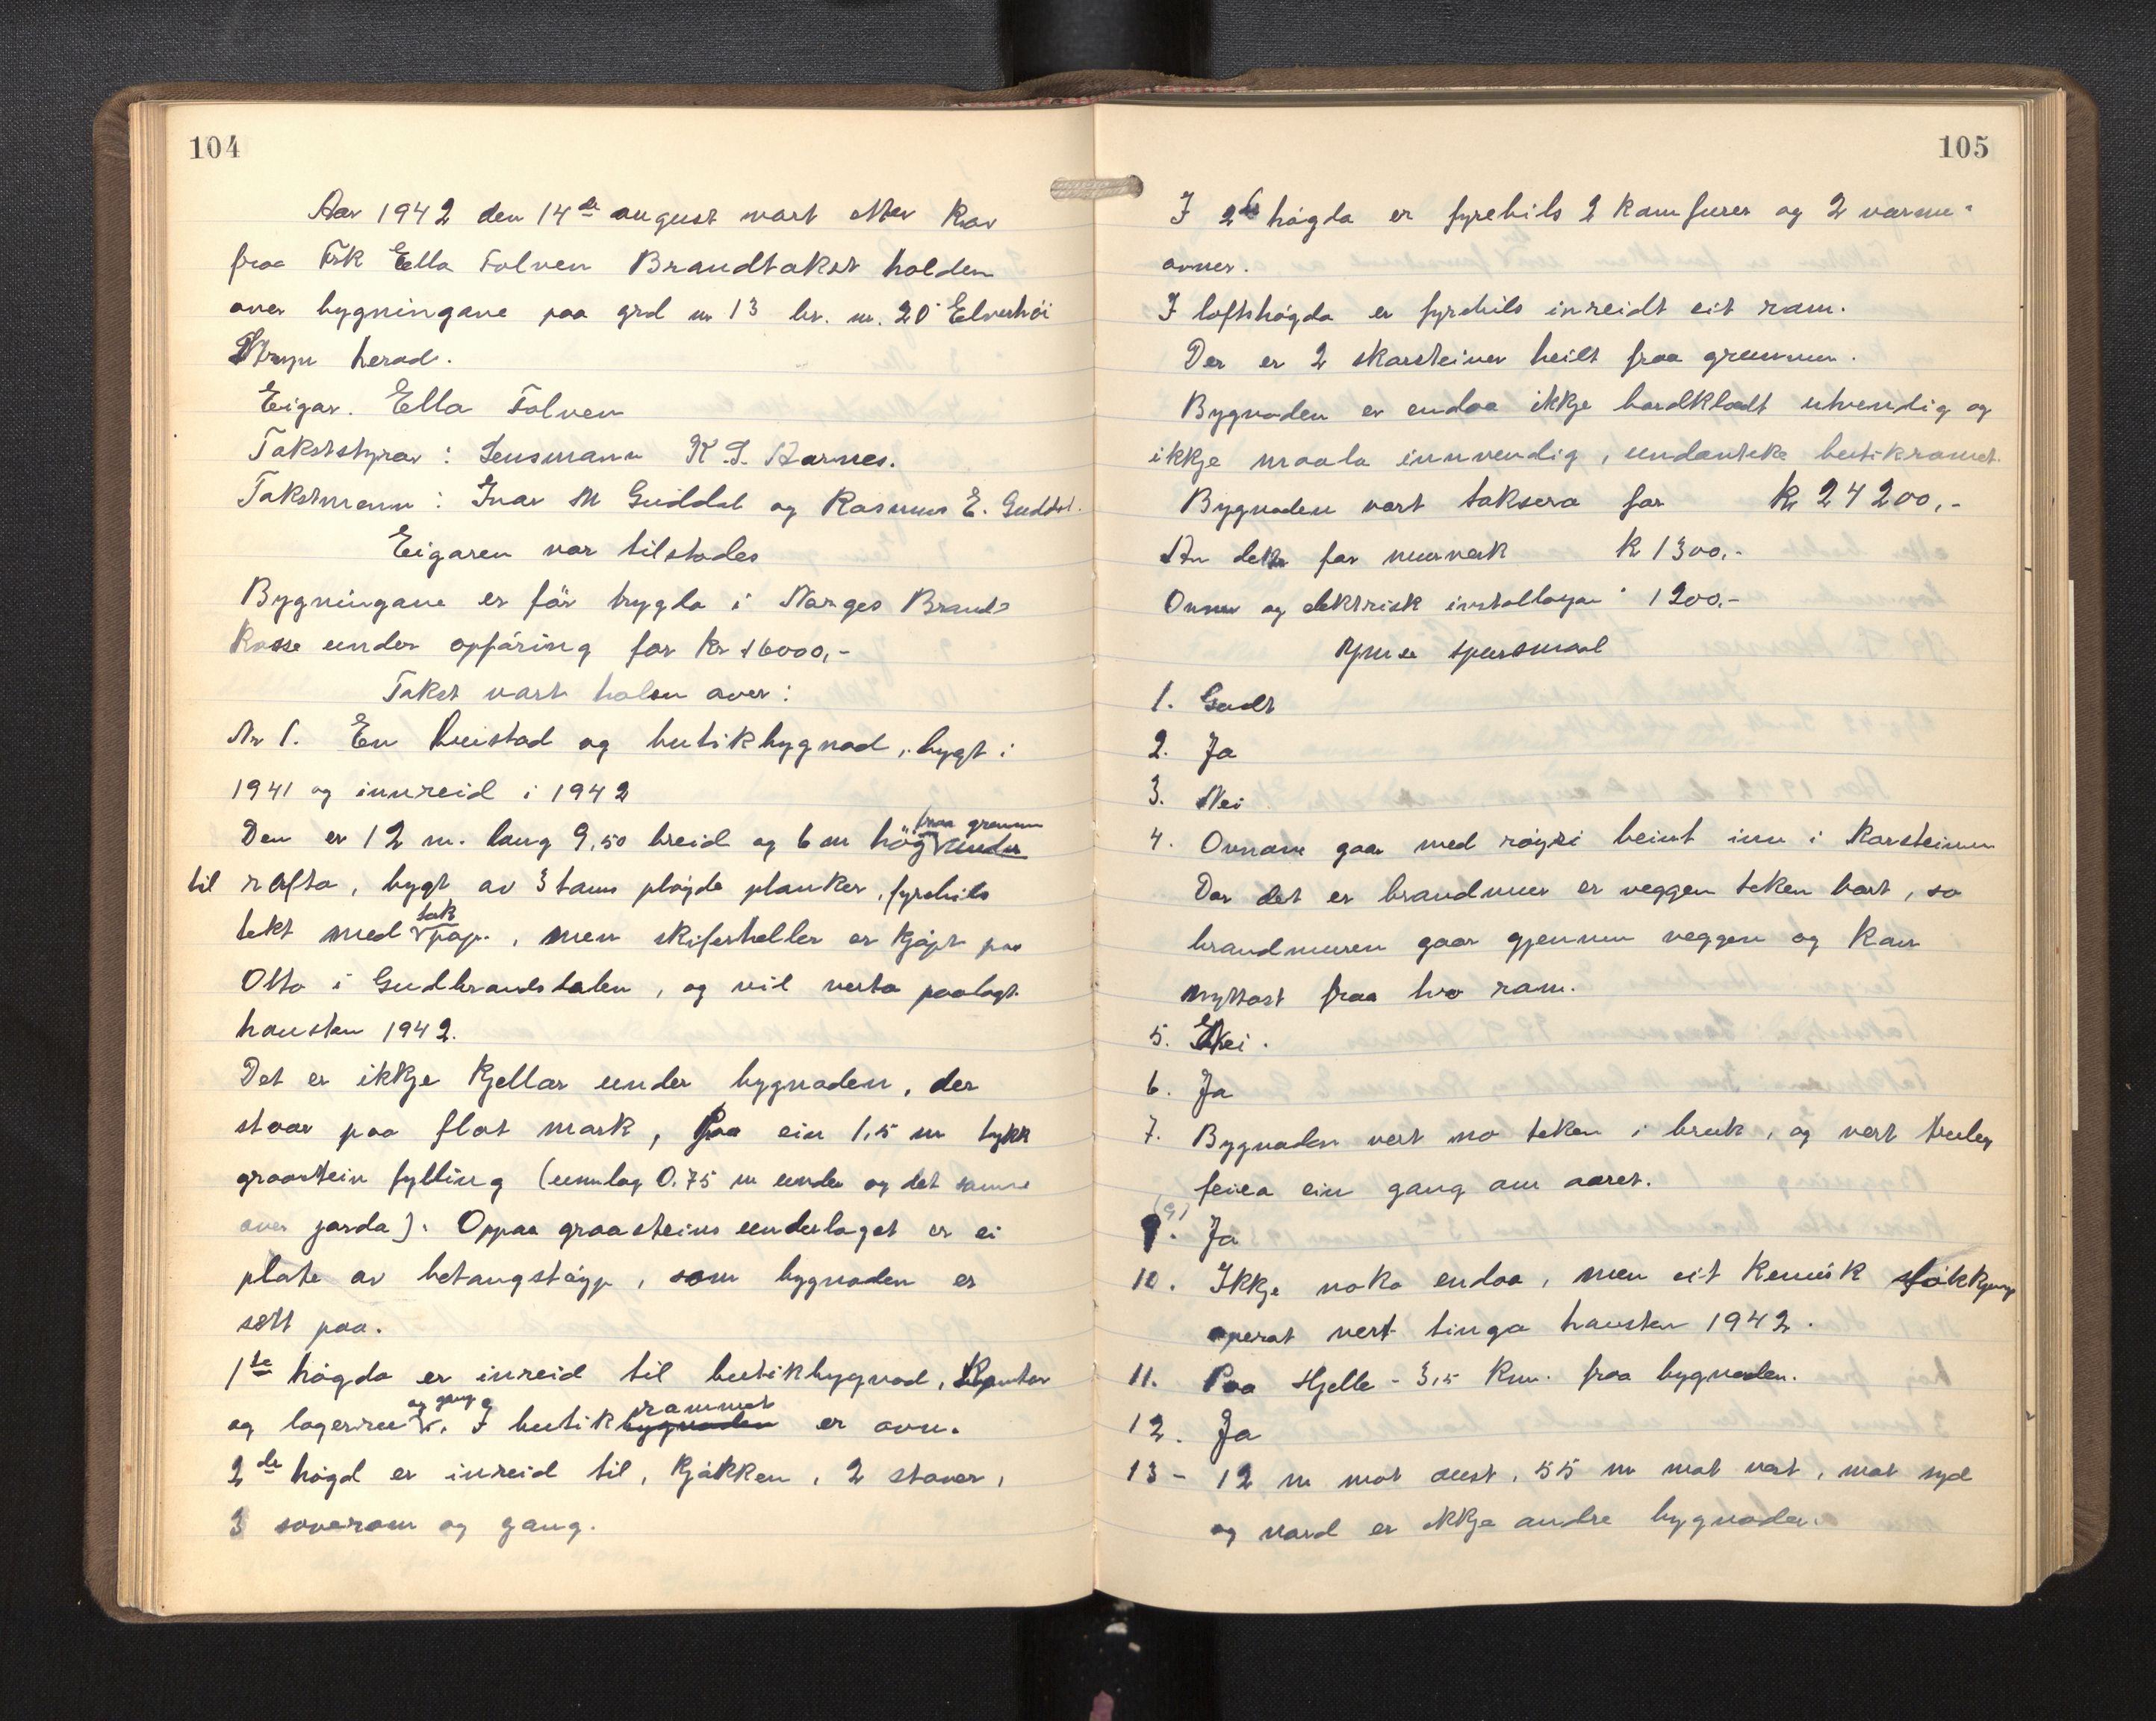 104
Aar 1942 den 14de august vart etter krav
fraa Frk Ella Folven Brandtakst holden
over bygningane paa grd nr 13 br. nr. 20 Elverhöi
Stryn herad.
Eigar. Ella Folven
Takststyrar: Lensmann
Takstmenn: Ivar M Guddal og Rasmus E. Guddal.
Eigaren var tilstades
Bygningane er för trygda i Norges Brand-
kasse under opföring for kr 16000,-
Takst vart holden over:
Nr 1. En beistad og butikbygnad, bygt i
1941 og innreid i 1942
Den er 12 m. lang 9,50 breid og 6 m hög fraa grunnen
til rafta, bygt av 3 toms pløgde planker, fyrebils
tekt med takpap., men skiferheller er kjøpt paa
Otta i Gudbrandsdalen, og vil verta paalagt
hausten 1942.
Det er ikkje kjellar under bygnaden, der
staar paa flat mark, paa ein 1,5 m tykk
graastein fylling (umlag 0.75 m under og det same
over jorda). Oppaa graasteins underlaget er ei
plate av betongstøyp, som bygnaden er
sett paa.
1ste høgda er inreid til butikbygnad, kontor
og lagerrum og gang. I butikrommet er ovn.
2de høgd er inreid til, kjøkken, 2 stover,
3 soverom og gang.
105
I 2de høgda er fyrebils 2 komfurer og 2 varme-
ovner.
I loftshøgda er fyrebils inreidt eit rom.
Der er 2 skorsteiner heilt fraa grunnen.
Bygnaden er endaa ikkje bordklædt utvendig og
ikkje maala innvendig, undanteke butikromet.
Bygnaden vart taksera for kr 24200,-
Av dette for murverk kr 1300,-
Ovner og elektrisk installasjon " 1200,-
Ymse spursmaal
1. Godt
2. Ja
3. Nei
4. Ovnane gaar med røyri beint inn i skorsteinen
Der det er brandmur er veggen teken bort, so
brandmuren gaar gjennom veggen og kan
nyttast fraa tvo rom.
5. Nei.
6. Ja
7. Bygnaden vert no teken i bruk, og vert truleg
feiea ein gang om aaret.
9. (9) Ja
10. Ikkje noko endaa, men eit kemisk sløkkjings
aperat vert tinga hausten 1942.
11. Paa Hjelle - 3,5 km. fraa bygnaden.
12. Ja
13 - 12 m mot aust, 55 m mot vest, mot syd
og nord er ikkje andre bygnader.